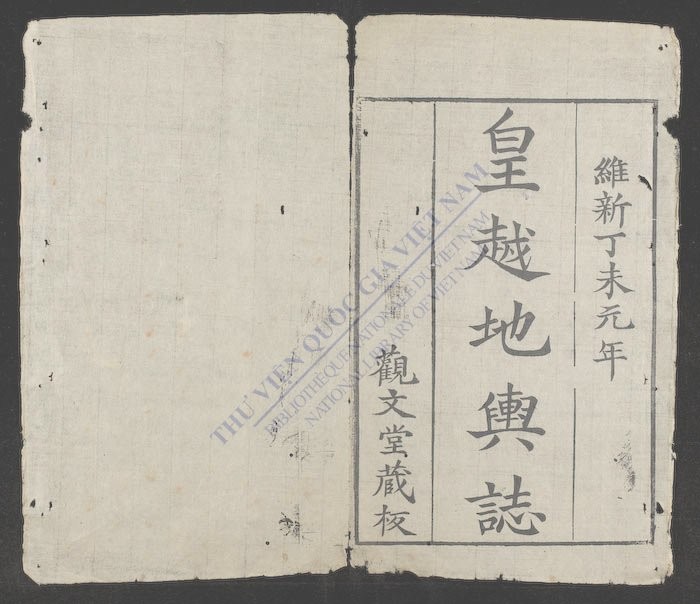 維新丁未元年
皇越地輿誌
觀文堂蔵板
THƯ VIỆN QUỐC GIA VIỆT NAM
BIBLIOTHÈQUE NATIONALE DU VIETNAM
NATIONAL LIBRARY OF VIETNAM